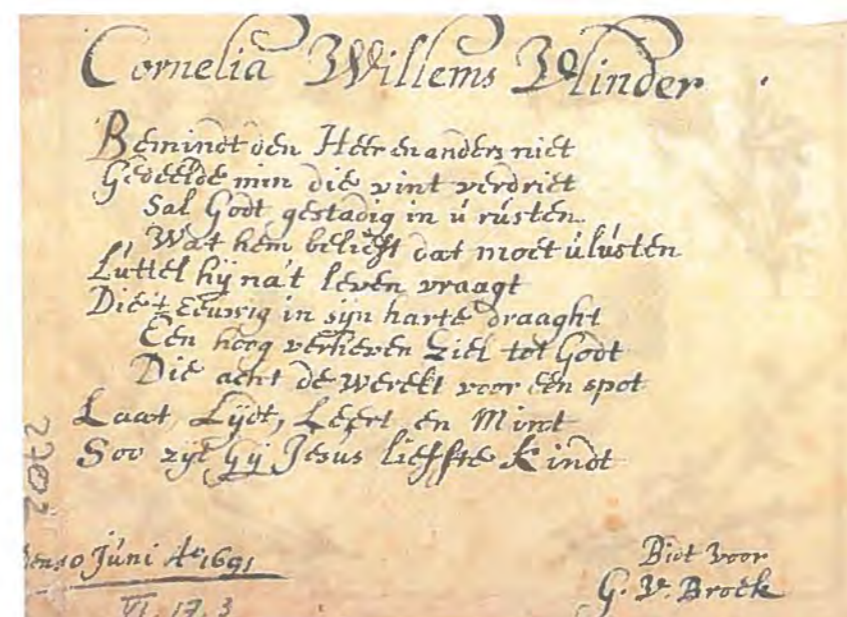 Cornelia Willems Vlinder
Bemindt den Heer en anders niet
Gedeelde min die vint verdriet
Sal Godt gestadig in ú rústen
Wat hem belieft dat moet ú lústen
Lúttel hij na't leven vraagt
Die't Eeuwig in sijn harte draaght
Een hoog verheven Ziel tot Godt
Die acht de werelt voor een spot
Laat, Lijdt, Leert en Mint
Soo zijt Gij Jesus liefste Kindt
den 10 Júni Aº 1691
Bidt voor
G. V. Broek
VI. 17. 3
2702